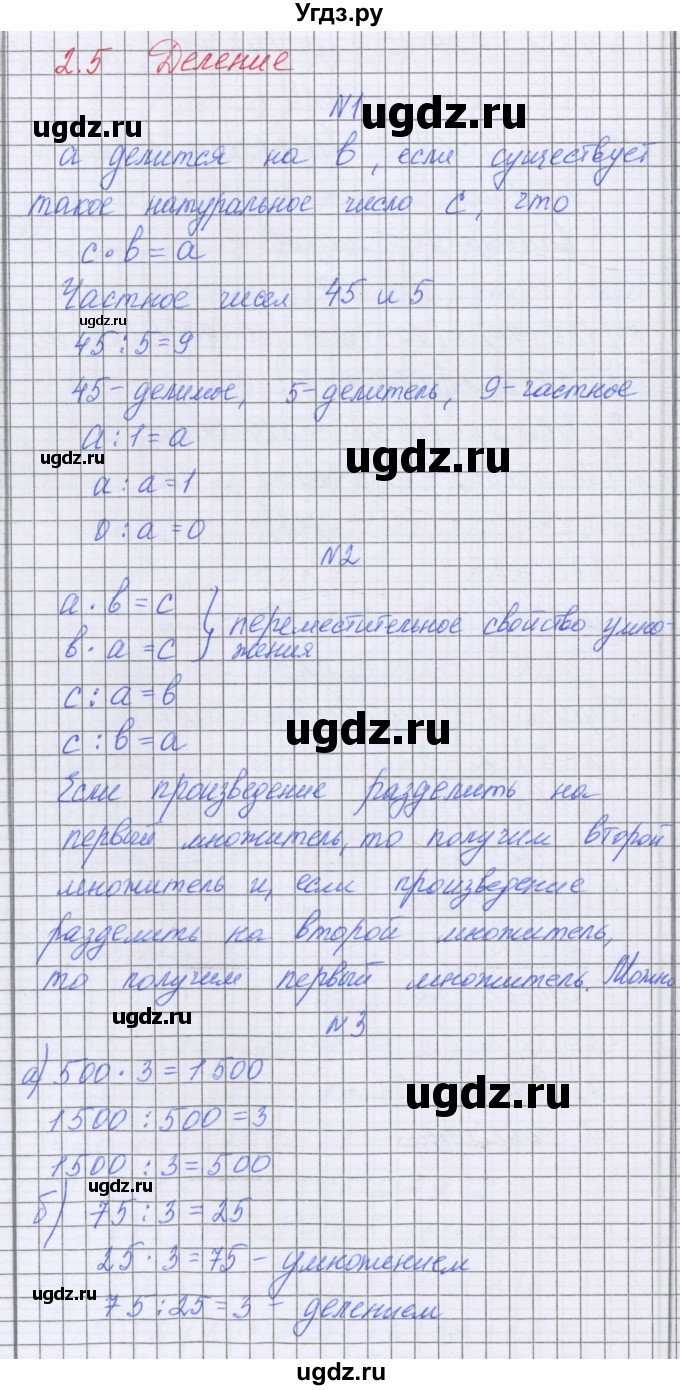 Угдз.ру
2.5 Деление
N1
ugdz.ru
ugdz.ru
a делится на b, если существует
такое натуральное число c, что
c·b=a
Частное чисел 45 и 5
ugdz.ru
45:5=9
45-делимое, 5-делитель, 9-частное
a:1=a
ugdz.ru
ugdz.ru
a:a=1
0:a=0
N2
a·b=c
b·a=c } переместительное свойство умно-
жения
c:a=b
ugdz.ru
c:b=a
Если произведение разделить на
первый множитель, то получим второй
множитель и, если произведение
разделить на второй множитель,
то получим первый множитель. Можно
ugdz.ru
N3
а) 500·3=1500
ugdz.ru
1500:500=3
1500:3=500
ugdz.ru
б) 75:3=25
25·3=75 - умножением
ugdz.ru
75:25=3 - делением
ugdz.ru
ugdz.ru